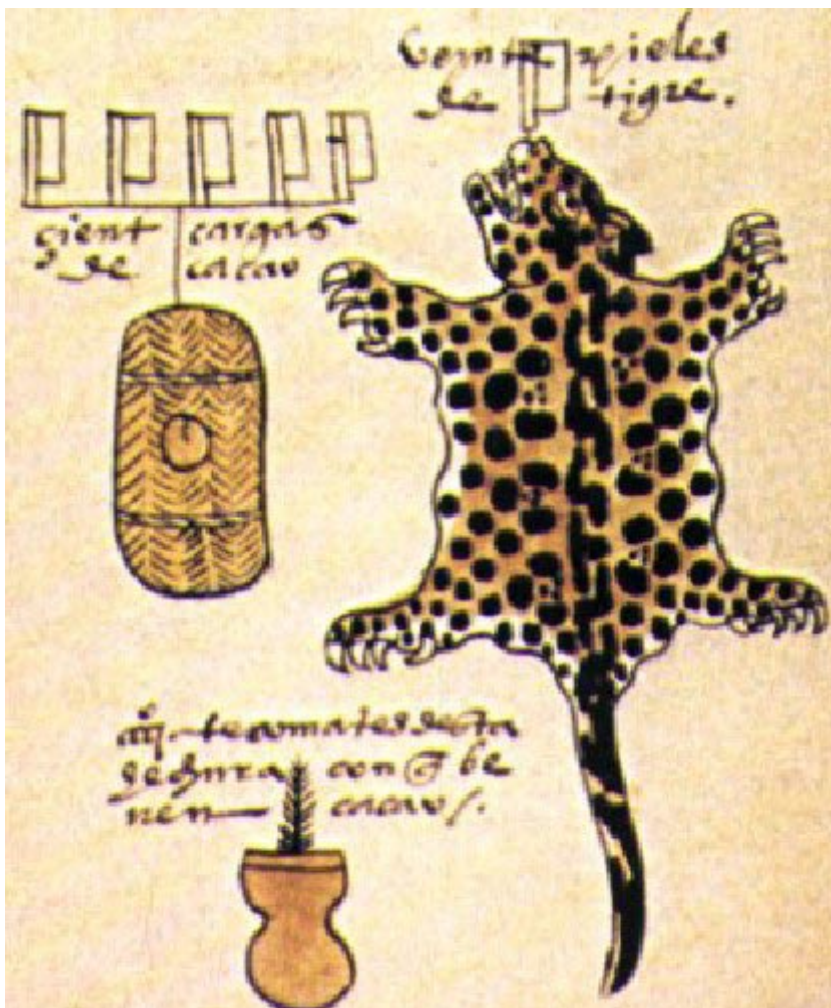 beynte pieles
de tigre.
çient cargas
de cacao
tecomates desta
hechura con q̃ be
ben cacao /.